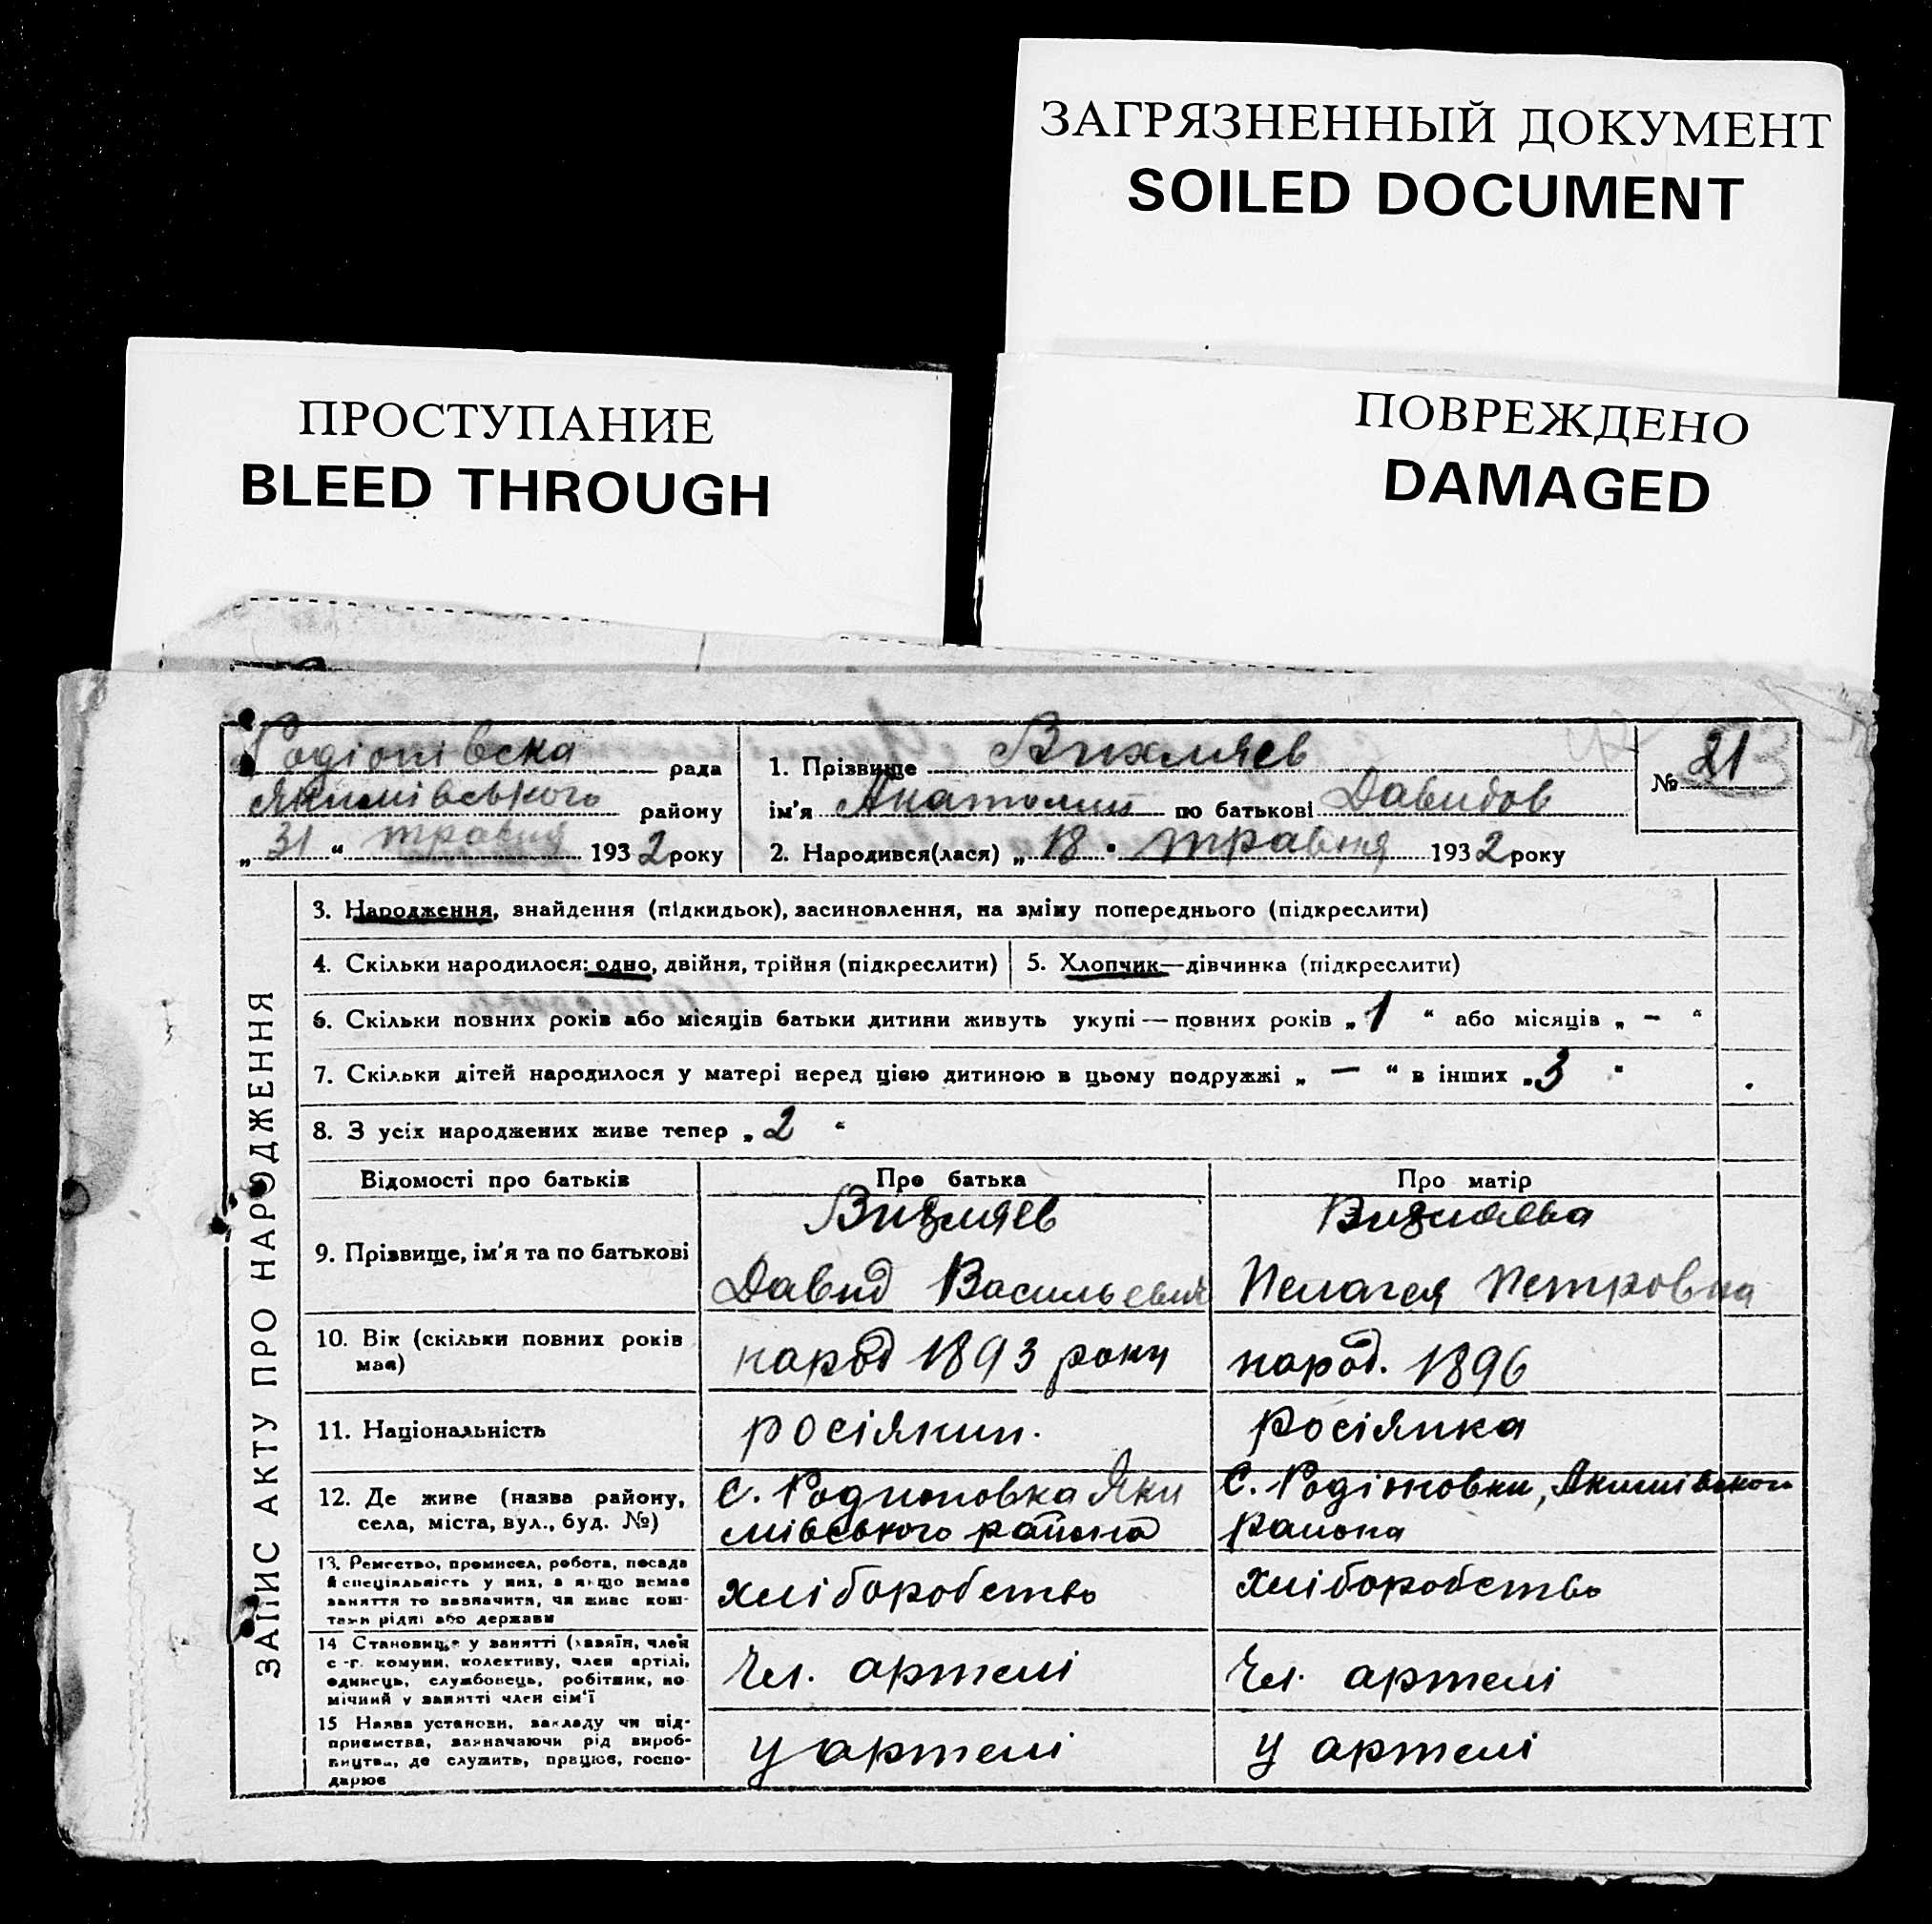 ЗАГРЯЗНЕННЫЙ ДОКУМЕНТ
SOILED DOCUMENT
ПРОСТУПАНИЕ
BLEED THROUGH
ПОВРЕЖДЕНО
DAMAGED
Родіонівска рада
Якимівського району
„ 31 “ травня 1932 року
1. Прізвище Вихляев
ім'я Анатолий по батькові Давидов
2. Народився(лася) „ 18 " травня 1932 року
№ 21
ЗАПИС АКТУ ПРО НАРОДЖЕННЯ
3. Народження, знайдення (підкидьок), засиновлення, на зміну попереднього (підкреслити)
4. Скільки народилося: одно, двійня, трійня (підкреслити)
5. Хлопчик—дівчинка (підкреслити)
6. Скільки повних років або місяців батьки дитини живуть укупі — повних років „ 1 “ або місяців „ – “
7. Скільки дітей народилося у матері перед цією дитиною в цьому подружжі „ — “ в інших „ 3 “
8. З усіх народжених живе тепер „ 2 “
Відомості про батьків
Про батька
Про матір
9. Прізвище, ім'я та по батькові
Вихляев
Давид Васильевич
Вихляева
Пелагея Петровна
10. Вік (скільки повних років має)
народ 1893 року
народ. 1896
11. Національність
росіянин.
росіянка
12. Де живе (назва району,
села, міста, вул., буд. №)
с. Родионовка Яки
мівського района
С. Родіоновки, Якимівского
района
13. Ремество, промисел, робота, посада
й спеціяльність у них, а якщо немає
заняття то зазначити, чи живе кош-
тами рідні або держави
хліборобство
хліборобство
14 Становище у занятті (хазяїн, член
с.-г. комуни, колективу, член артілі,
одинець, службовець, робітник, по
мічний у занятті член сім'ї
Чл. артелі
Чл. артелі
15 Назва установи, закладу чи під-
приємства, зазначаючи рід вироб-
ництва, де служить, працює, госпо-
дарює
у артелі
у артелі